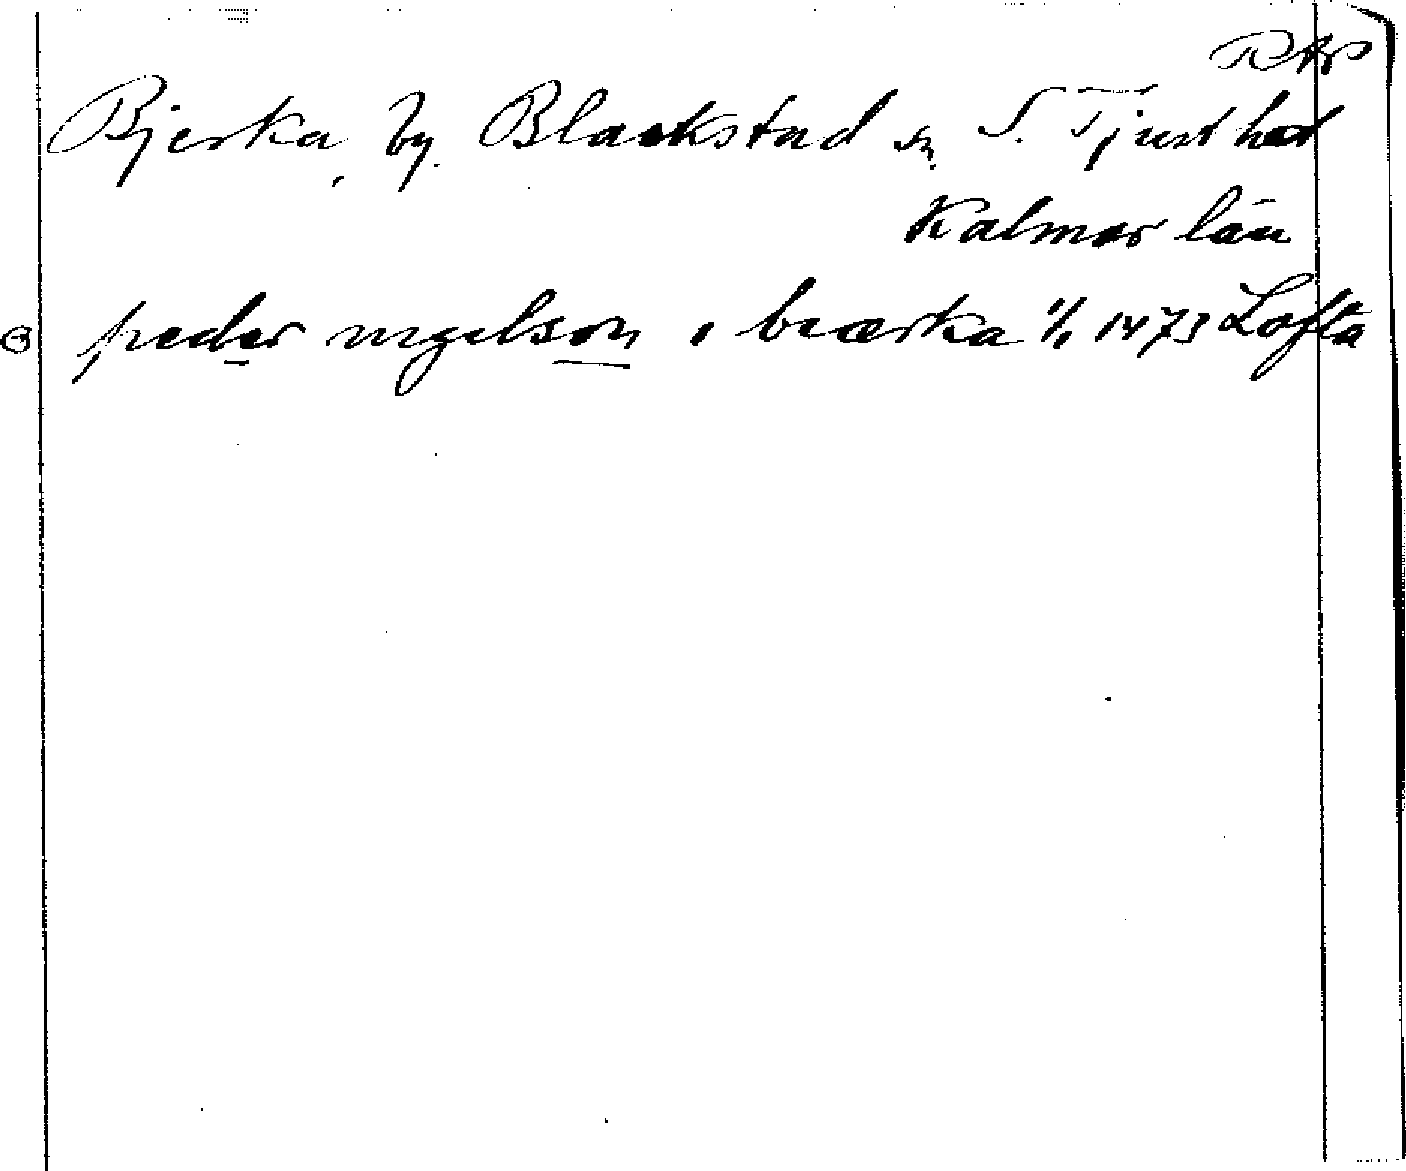 RAP
Bjerka, by. Blackstad sn. S. Tjust hd
Kalmar län
peder ingelson i biærka 1/1 1473 Lofta